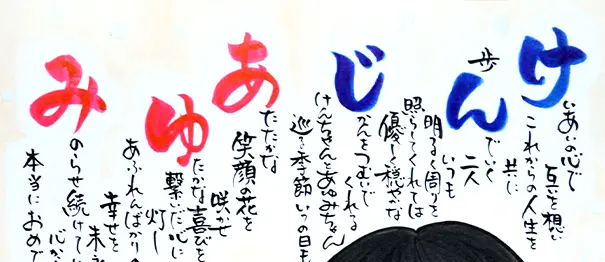 けいあいの心で
互いを想い
これからの人生を
共に
歩んでいく
二人
いつも
明るく周りを
照らしてくれては
優しく穏やかな
じかんをつむいで
くれる
けんちゃんとあゆみちゃん
巡る季節いつの日も
あたたかな
笑顔の花を
咲かせ
ゆたかな喜びを
繋いだ心に
灯し
あふれんばかりの
幸せを
末永
みのらせ続けてい
心か
本当におめで